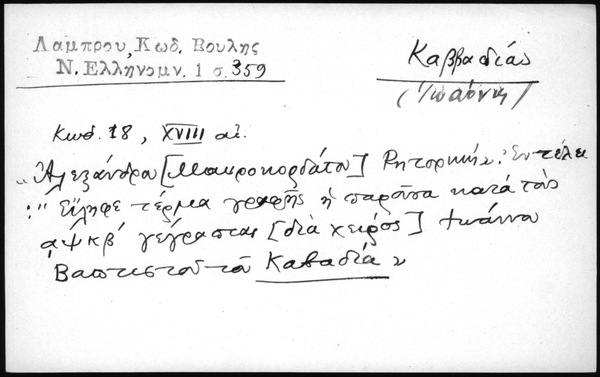 Λαμπρου, Κωδ. Βουλης
Ν. Ελληνομν. 1 σ. 359
Καββαδίας
(Ἰωάννης)
Κωδ. 18, XVIII αἰ.
"Ἀλεξάνδρου [Μαυροκορδάτου] Ῥητορική". Ἐν τέλει
: "Εἴληφε τέρμα γραφῆς ἡ παροῦσα κατὰ τὸ
αψκβ´ γέγραπται [διὰ χειρὸς] Ἰωάννου
Βαπτιστοῦ τοῦ Καβαδία"